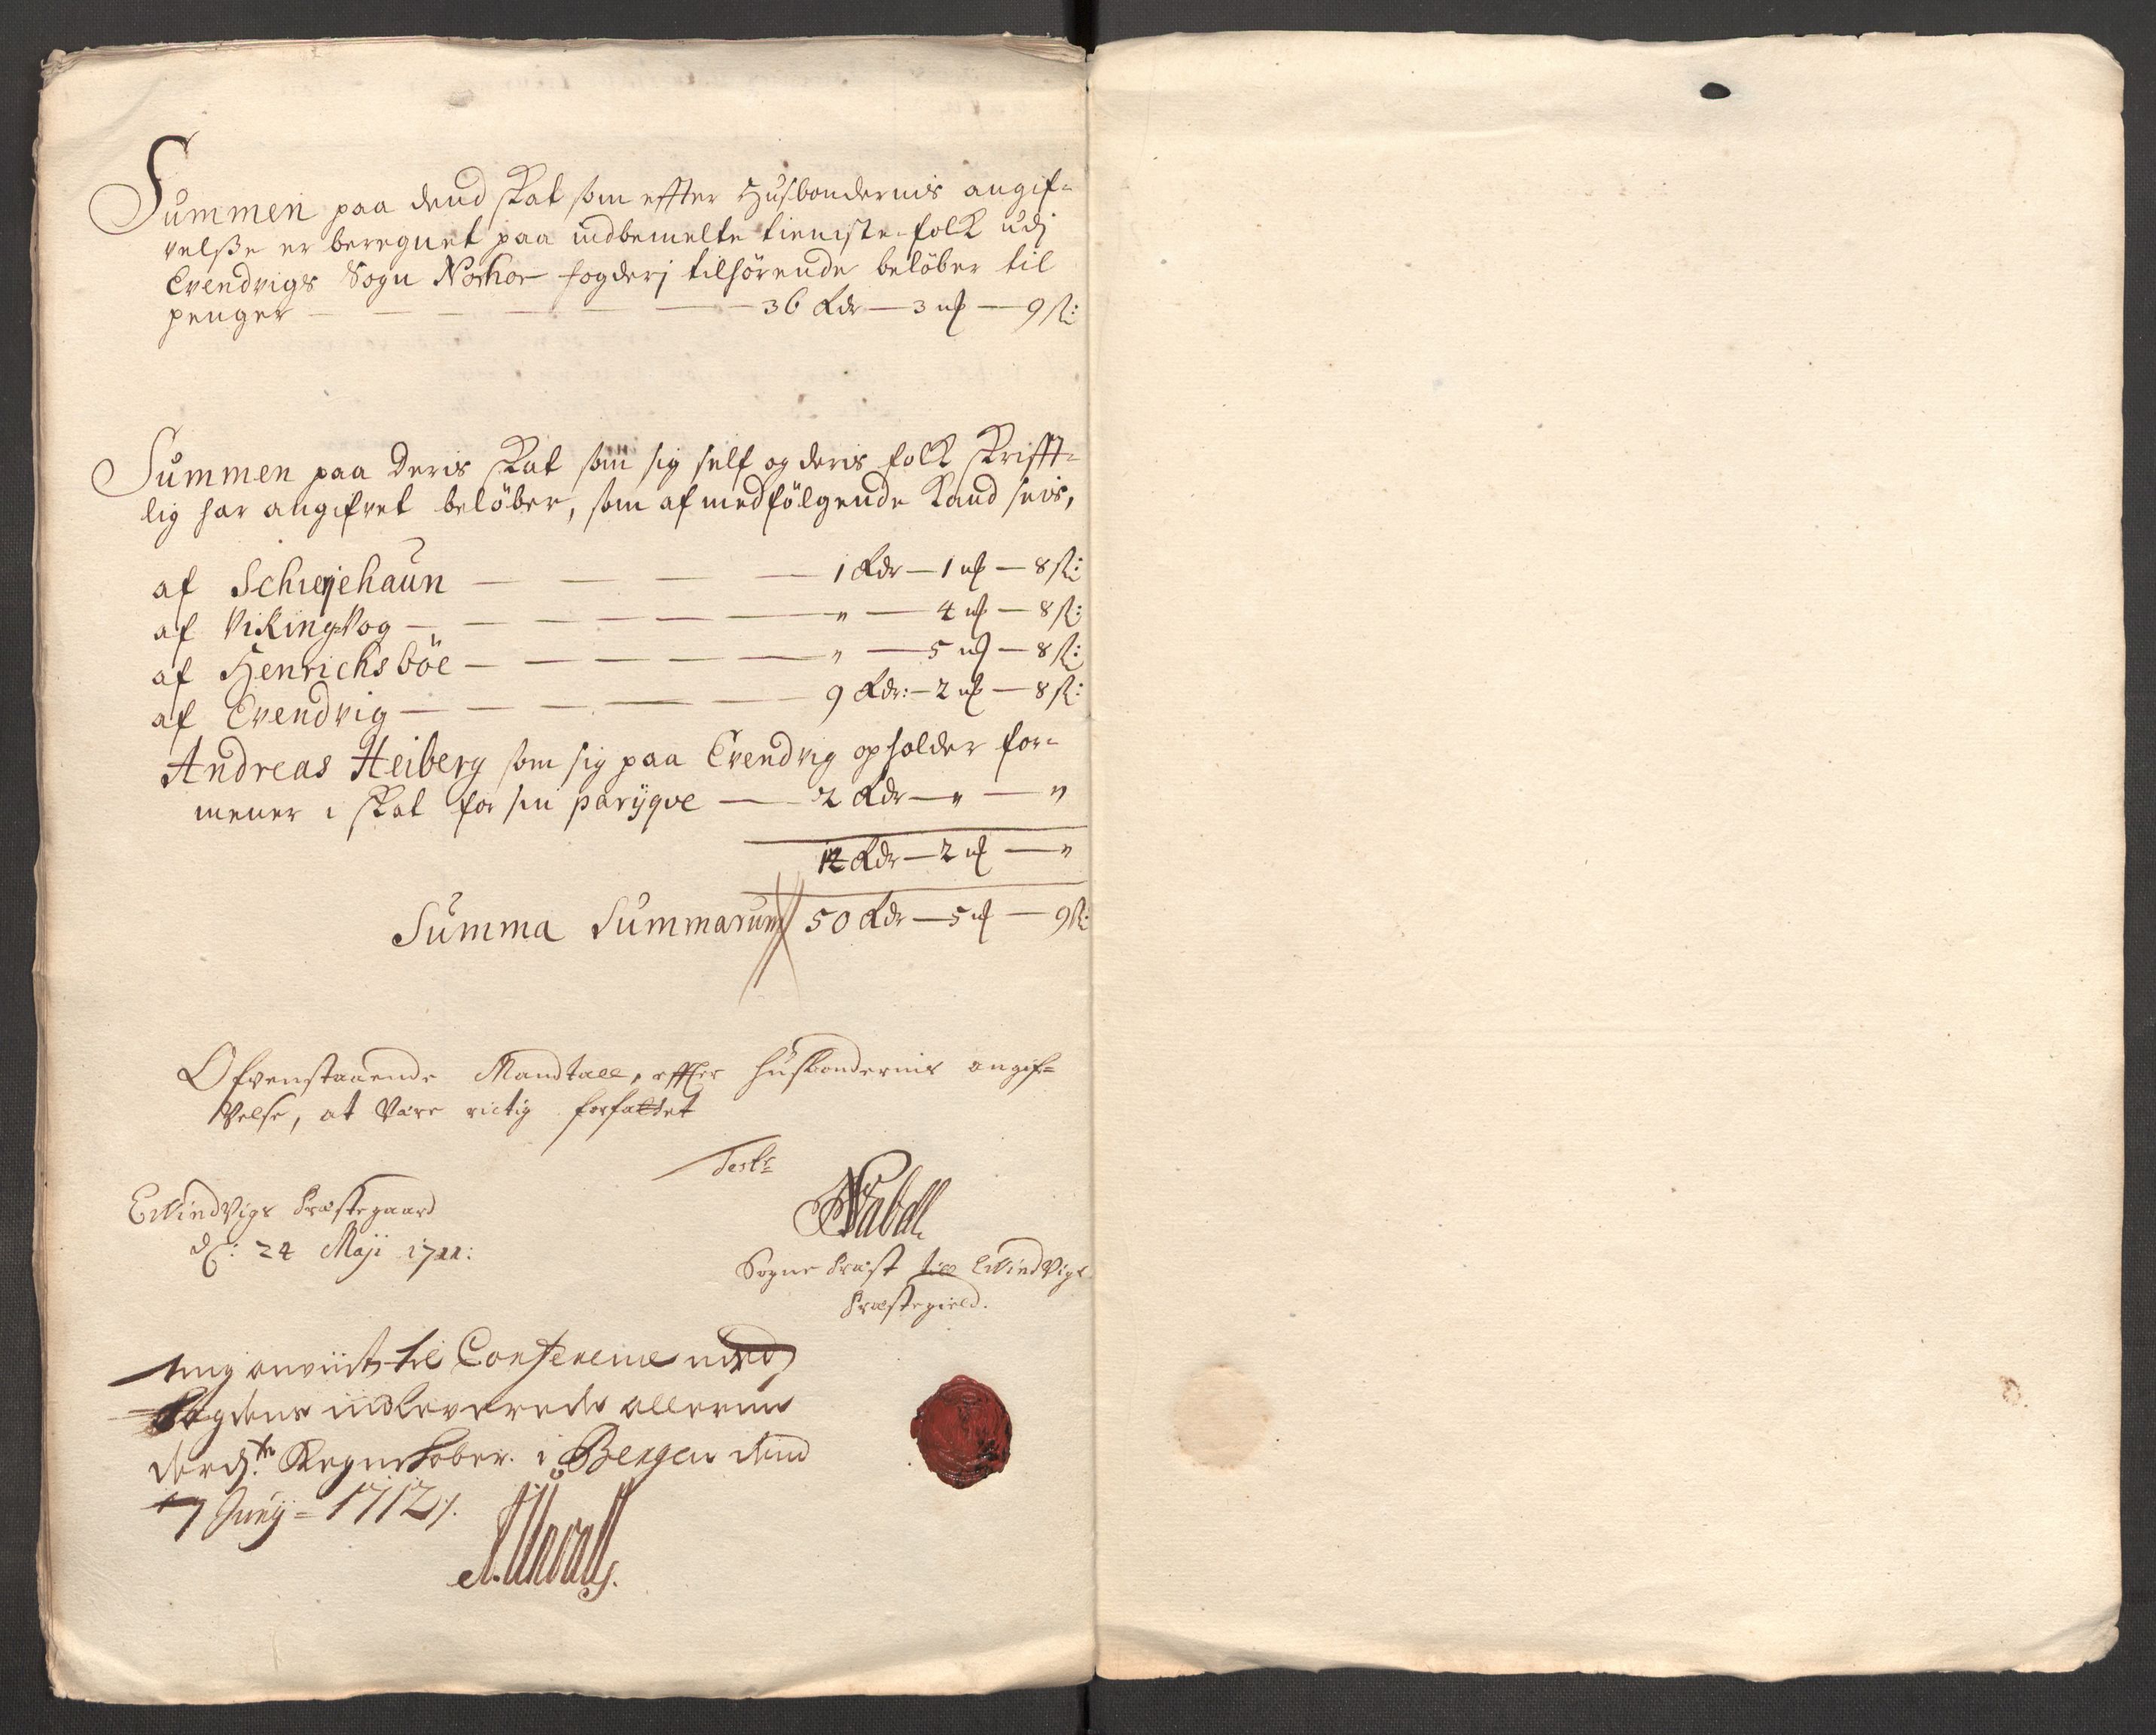 Summen paa dend skat som effter Husbondernis angif-
velsse er beregnet paa indbemelte tieniste-folk udj
Evendvigs Sogn Norhor fogderj tilhörende belöber til
penger — 36 Rdr — 3 mk — 9 sk:
Summen paa deris skat som sig self og deris folk skrifft-
lig har angifvet belöber, som af medfölgende kand sees,
af Schiejehaun — 1 Rdr — 1 mk — 8 sk:
af VikingVog — " — 4 mk — 8 sk:
af Henrichsböe — " — 5 mk — 8 sk:
af Evendvig — 9 Rdr: — 2 mk — 8 sk:
Andreas Heiberg som sig paa Evendvig opholder for-
mener i skat for sin parÿqve — 2 Rdr — " — "
Rdr — 2 mk — "
Summa Summarum 50 Rdr — 5 mk — 9 sk:
Ofvenstaaende Mandtall, effter husbondernis angif=
velse, at være rictig forfattet
Test:
EvindVigs Præstegaard
d: 24 Maji 1711:
Sogne Præst till EvindVigs
Præstegield.
anviist til Conference med
Fogdens indleverede allerun
derd: Regnskaber. i Bergen dend
17 Junÿ = 1712